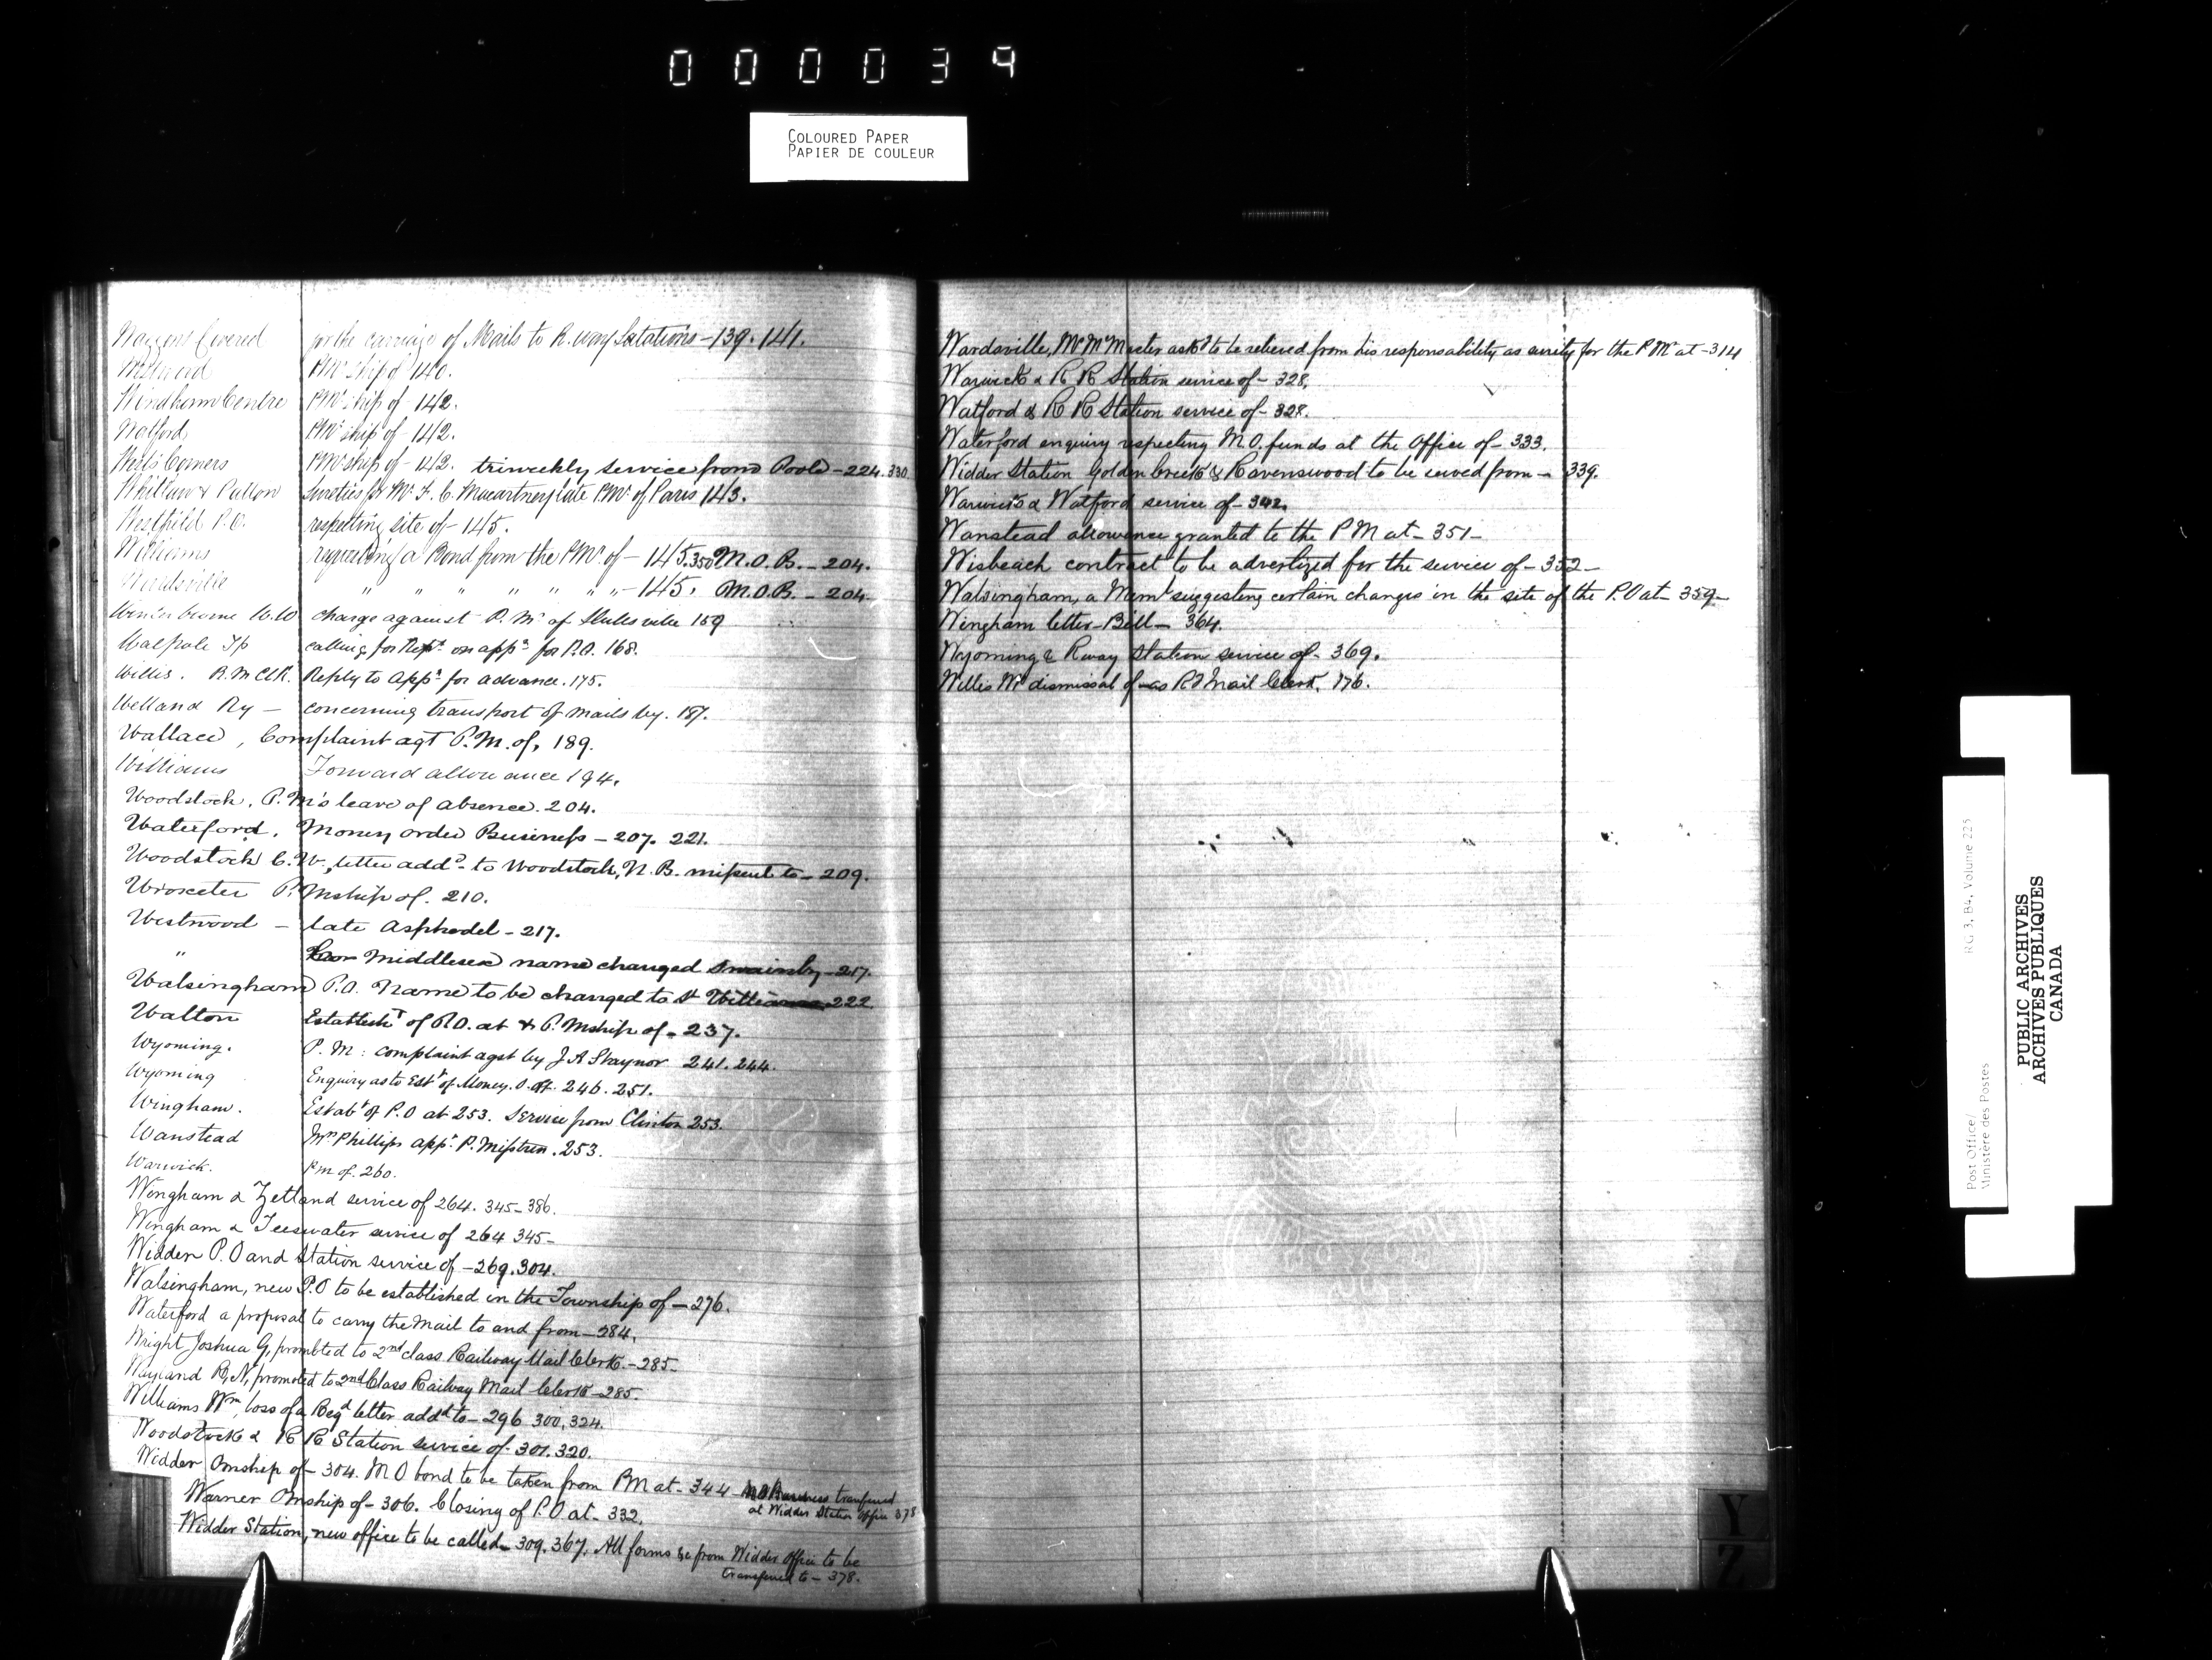 000039
COLOURED PAPER
PAPIER DE COULEUR
Waggons Covered for the carriage of Mails to R. way Satations - 139. 141.
PMrship of 140.
Windham Centre PMrship of - 142.
Watford, PMr ship of - 142.
West's Corners PMrship of - 142. triweekly service from Poole - 224. 330.
Whitlaw & Patton Sureties for Mr. F. C. Macartney late PMr. of Paris 143.
Westfield P.O. respecting site of - 145.
Williams requesting a Bond from the PMr. of - 145. 350 M.O.B. - 204.
Wardsville " " " " " " " - 145. M.O.B. - 204.
Winterbourne C.W. charge against P. Mr. of 159
Walpole Tp calling for Rept. on appn. for P.O. 168.
Willis. R. M Clk. Reply to Appn. for advance. 175.
Welland Ry - concerning transport of mails by. 187.
Wallace, Complaint agt P.M. of, 189.
Williams Forward allowance 194.
Woodstock, P.M's leave of absence. 204.
Waterford. Money order Business - 207. 221.
Woodstock C.W., letter addd. to Woodstock, N.B. missent to - 209.
Wroxeter P. Mship of. 210.
Westwood - late Asphodel - 217.
" Middlesex name changed Swainsby - 217.
Walsingham P.O. Name to be changed to St Williams 222
Walton Establisht of P.O. at & P. Mship of - 237.
Wyoming. P. M: complaint agst by J A Staynor 241. 244.
Wyoming Enquiry as to Estt of Money. O. at. 246. 251.
Wingham. Estabt of P.O at 253. Service from Clinton 253.
Wanstead Mrs Phillips appt. P. Mistress. 253.
Warwick. Pm of. 260.
Wingham & Zetland service of 264. 345 - 386.
Wingham & Teeswater service of 264 345 -
Widder P.O and Station service of - 269. 304.
Walsingham, new P.O to be established in the Township of - 276.
Waterford a proposal to carry the Mail to and from - 284.
Wright Joshua G, promoted to 2nd class Railway Mail Clerk. - 285 -
Wayland R, N, promoted to 2nd Class Railway Mail Clerk - 285.
Williams Wm, loss of a Regd letter addd to - 296 300, 324.
Woodstock & R R Station service of - 301. 320.
Widder Pmship of - 304. M O bond to be taken from PM at - 344 - M O Business transferred
at Widder Station Office 378
Warner Pmship of - 306. Closing of P.O at - 332.
Widder Station, new office to be called - 309. 367. All forms &c from Widder Office to be
transferred to - 378.
Wardsville, Mr McMaster askd to be relieved from his responsability as surety for the P Mr at - 314
Warwick & R R Station service of - 328.
Watford & R R Station service of - 328.
Waterford enquiry respecting M O. funds at the Office of - 333.
Widder Station Golden Creek & Ravenswood to be served from - 339.
Warwick & Watford service of - 342.
Wanstead allowance granted to the P M at - 351 -
Wisbeach contract to be advertized for the service of - 352 -
Walsingham, a Memt suggesting certain changes in the site of the P.O at - 359 -
Wingham letter - Bill - 364.
Wyoming & Rway Station service of - 369.
Willis Wm dismissal of - as R Mail Clerk, 176.
Y
Z
RG 3, B4, Volume 225
Post Office/
Ministère des Postes
PUBLIC ARCHIVES
ARCHIVES PUBLIQUES
CANADA